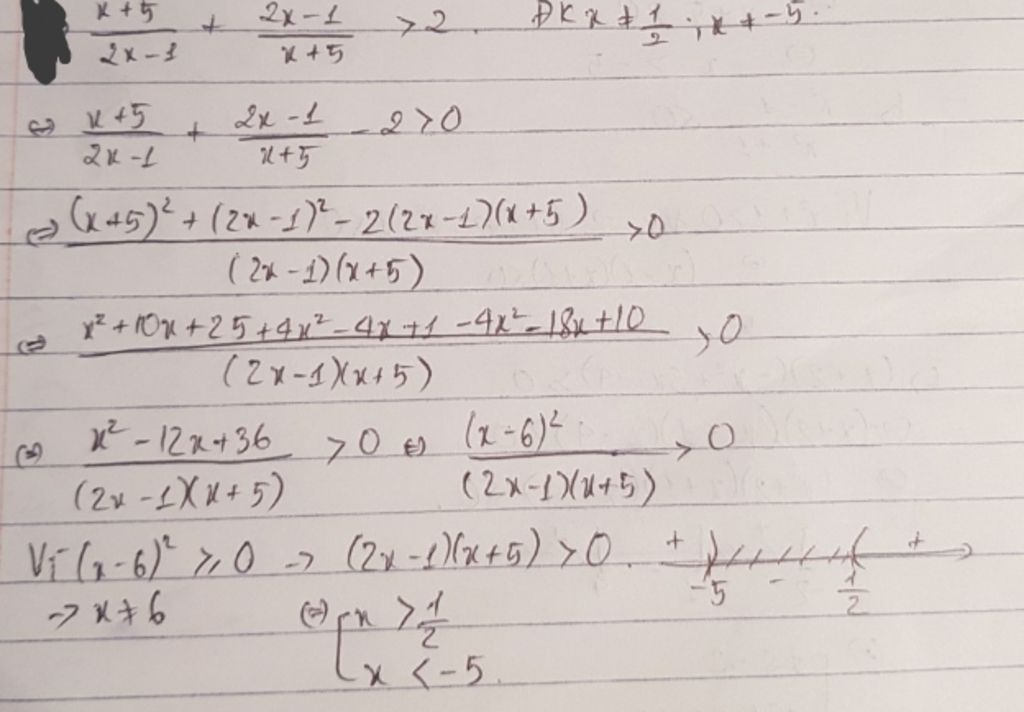 (x+5)/(2x-1) + (2x-1)/(x+5) > 2. ĐK x ≠ 1/2 ; x ≠ -5.
⇔ (x+5)/(2x-1) + (2x-1)/(x+5) - 2 > 0
⇔ ((x+5)² + (2x-1)² - 2(2x-1)(x+5))/((2x-1)(x+5)) > 0
⇔ (x² + 10x + 25 + 4x² - 4x + 1 - 4x² - 18x + 10)/((2x-1)(x+5)) > 0
⇔ (x² - 12x + 36)/((2x-1)(x+5)) > 0 ⇔ (x-6)²/((2x-1)(x+5)) > 0
Vì (x-6)² ≥ 0 → (2x-1)(x+5) > 0. + -5 - 1/2 +
→ x ≠ 6 ⇔ [ x > 1/2
x < -5.